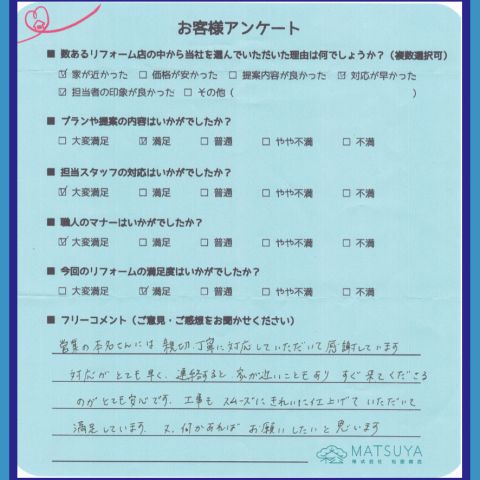 お客様アンケート
■ 数あるリフォーム店の中から当社を選んでいただいた理由は何でしょうか？（複数選択可）
☑ 家が近かった □ 価格が安かった □ 提案内容が良かった ☑ 対応が早かった
☑ 担当者の印象が良かった □ その他（ ）
■ プランや提案の内容はいかがでしたか？
□ 大変満足 ☑ 満足 □ 普通 □ やや不満 □ 不満
■ 担当スタッフの対応はいかがでしたか？
☑ 大変満足 □ 満足 □ 普通 □ やや不満 □ 不満
■ 職人のマナーはいかがでしたか？
☑ 大変満足 □ 満足 □ 普通 □ やや不満 □ 不満
■ 今回のリフォームの満足度はいかがでしたか？
□ 大変満足 ☑ 満足 □ 普通 □ やや不満 □ 不満
■ フリーコメント（ご意見・ご感想をお聞かせください）
営業の本石さんには 親切、丁寧に対応していただいて感謝しています
対応が とても早く、連絡すると 家が近いこともあり すぐ来てくださる
のがとても安心です。工事も スムーズに きれいに仕上げて いただいて
満足しています。又、何かあれば お願いしたいと思います
MATSUYA
株式会社